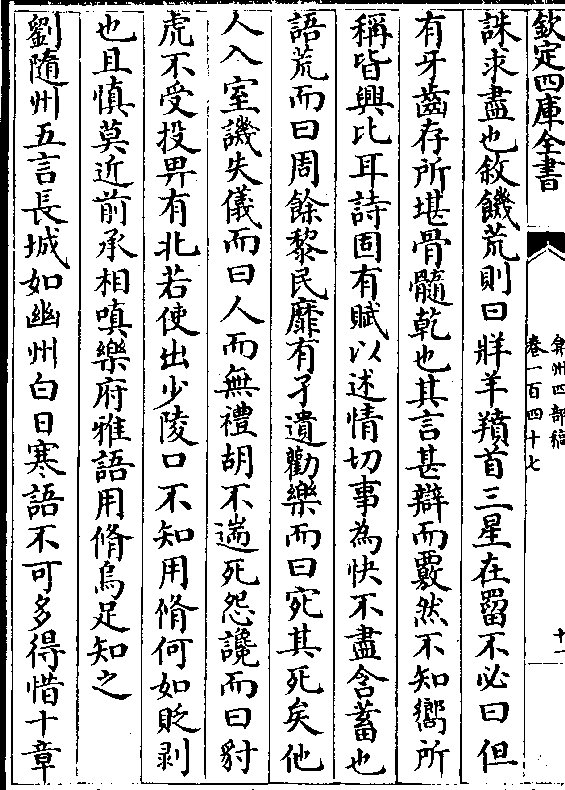 欽定四庫全書
弇州四部稿
卷一百四十七
十一
誅求盡也敘饑荒則曰牂羊羵首三星在罶不必曰但
有牙齒存所堪骨髓乾也其言甚辯而覈然不知嚮所
稱皆興比耳詩固有賦以述情切事為快不盡含蓄也
語荒而曰周餘黎民靡有孑遺勸樂而曰宛其死矣他
人入室譏失儀而曰人而無禮胡不遄死怨讒而曰豺
虎不受投畀有北若使出少陵口不知用脩何如貶剥
也且慎莫近前承相嗔樂府雅語用脩烏足知之
劉隨州五言長城如幽州白日寒語不可多得惜十章